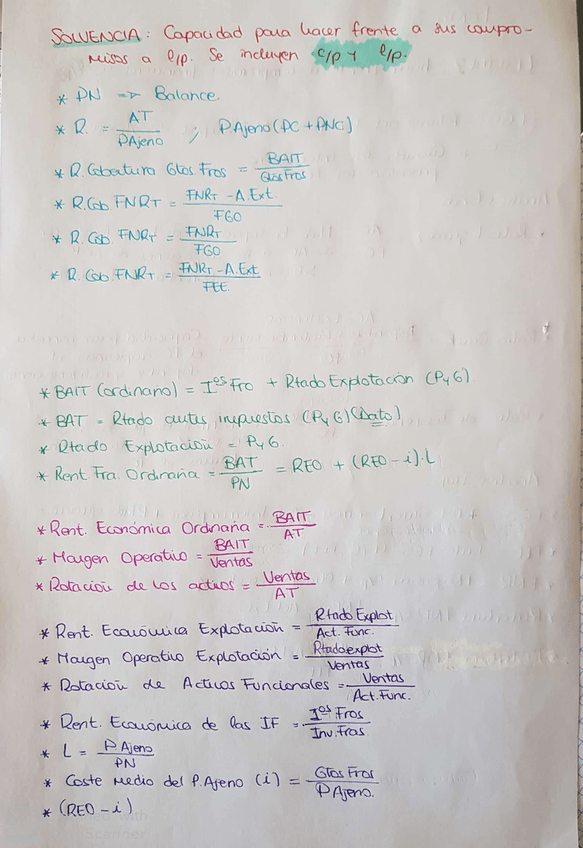 SOLVENCIA: Capacidad para hacer frente a sus compro-
misos a l/p. Se incluyen c/p y l/p.
* PN => Balance.
* R. = AT / PAjeno ; PAjeno (PC + PNC)
* R. Cobertura Gtos Fros = BAIT / Gtos Fros
* R. Cob FNRT = FNRT - A. Ext. / FGO
* R. Cob FNRT = FNRT / FGO
* R. Cob. FNRT = FNRT - A. Ext / FEE
* BAIT (ordinario) = Ios Fro + Rtado Explotación (PyG)
* BAT = Rtado antes impuestos (PyG) (Dato)
* Rtado Explotación = PyG.
* Rent Fra. Ordinaria = BAT / PN = REO + (REO - i) · L
* Rent. Económica Ordinaria = BAIT / AT
* Margen Operativo = BAIT / Ventas
* Rotación de los activos = Ventas / AT
* Rent. Económica Explotación = Rtado Explot. / Act. Func.
* Margen Operativo Explotación = Rtado explot / Ventas
* Rotación de Activos Funcionales = Ventas / Act. Func.
* Rent. Económica de las IF = Ios Fros / Inv. Fras
* L = P Ajeno / PN
* Coste Medio del P. Ajeno (i) = Gtos Fros / P Ajeno.
* (REO - i)